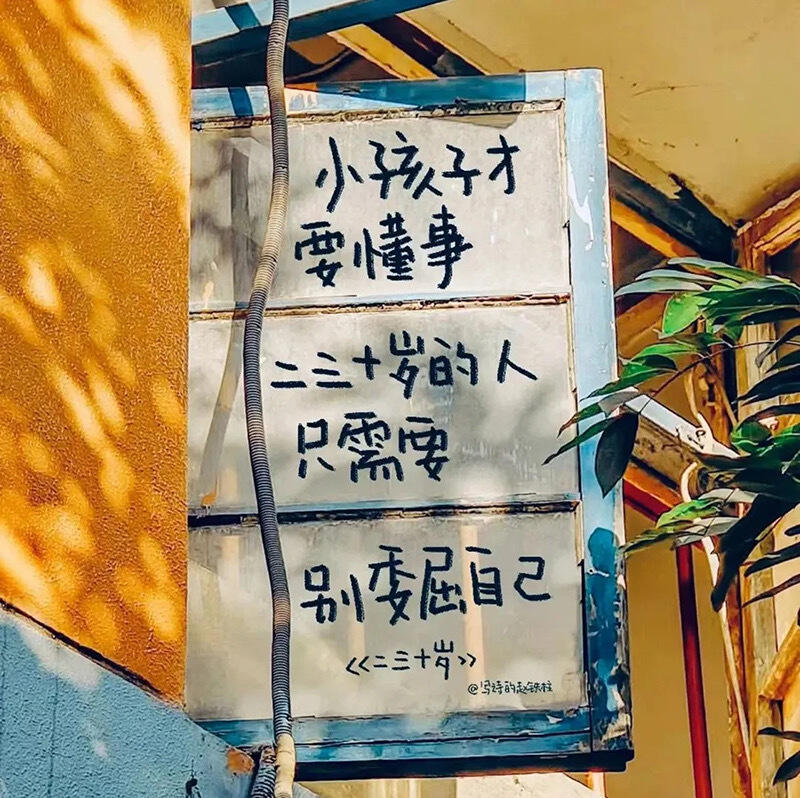 小孩子才
要懂事
二三十岁的人
只需要
别委屈自己
《二三十岁》
@写诗的赵铁柱